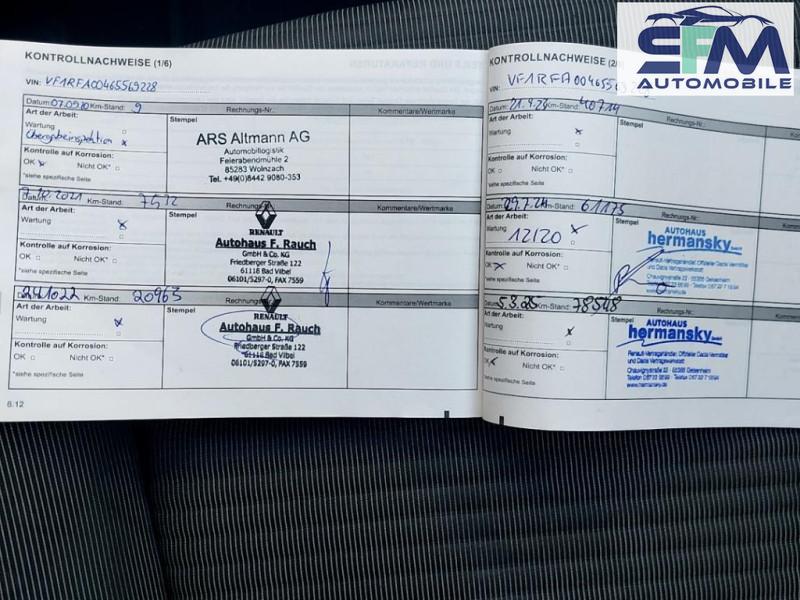 SFM
AUTOMOBILE
KONTROLLNACHWEISE (1/6)
VIN: VF1RFA00465569228
Datum: 07.09.20 Km-Stand: 9 Rechnungs-Nr.: Kommentare/Wertmarke
Art der Arbeit: Stempel
Wartung
Übergabeinspektion x
Kontrolle auf Korrosion:
OK x Nicht OK*
*siehe spezifische Seite
ARS Altmann AG
Automobillogistik
Feierabendmühle 2
85283 Wolnzach
Tel. +49(0)8442 9080-353
Datum: 10.2021 Km-Stand: 7512 Rechnungs-Nr.: Kommentare/Wertmarke
Art der Arbeit: Stempel
Wartung x
Kontrolle auf Korrosion:
OK Nicht OK*
*siehe spezifische Seite
RENAULT
Autohaus F. Rauch
GmbH & Co. KG
Friedberger Straße 122
61118 Bad Vilbel
06101/5297-0, FAX 7559
24.10.22 Km-Stand: 20963 Rechnungs-Nr.: Kommentare/Wertmarke
Art der Arbeit: Stempel
Wartung x
Kontrolle auf Korrosion:
OK Nicht OK*
*siehe spezifische Seite
RENAULT
Autohaus F. Rauch
GmbH & Co. KG
Friedberger Straße 122
61118 Bad Vilbel
06101/5297-0, FAX 7559
6.12
KONTROLLNACHWEISE (2/
VIN: VF1RFA00465569
Datum: Km-Stand: 40714 Rechnungs-Nr.:
Art der Arbeit: Stempel
Wartung x
Kontrolle auf Korrosion:
OK x Nicht OK*
*siehe spezifische Seite
Datum: 29.7.24 Km-Stand: 61173 Rechnungs-Nr.:
Art der Arbeit: Stempel
Wartung x
12120
Kontrolle auf Korrosion:
OK x Nicht OK*
*siehe spezifische Seite
AUTOHAUS
hermansky GmbH
Renault-Vertragshändler, Offizieller Dacia Vermittler
und Dacia Vertragswerkstatt
www.hermansky.de
Datum: 5.3.25 Km-Stand: 78548 Rechnungs-Nr.:
Art der Arbeit: Stempel
Wartung x
Kontrolle auf Korrosion:
OK x Nicht OK*
*siehe spezifische Seite
AUTOHAUS
hermansky GmbH
Renault-Vertragshändler, Offizieller Dacia Vermittler
und Dacia Vertragswerkstatt
www.hermansky.de